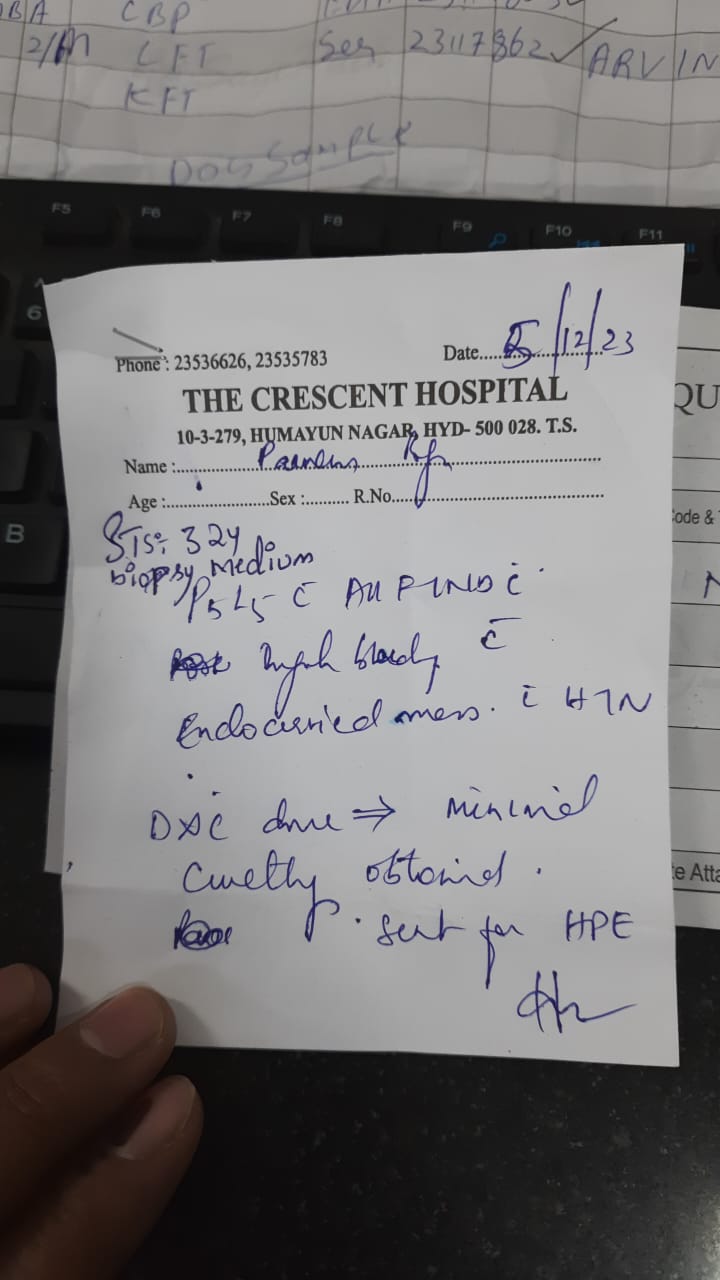 CBP
2/M LFT Ser 23117862 ✓ ARVIN
KFT
DOG SAMPLE
F5 F6 F7 F8 F9 F10 F11
6
B
Phone : 23536626, 23535783 Date.....5/12/23
THE CRESCENT HOSPITAL
10-3-279, HUMAYUN NAGAR, HYD- 500 028. T.S.
Name :
Age :..........Sex :.......... R.No.....
STS: 324
biopsy medium
P5L5 c̄ c̄
bleedg c̄
mass. c̄ HTN
D&C done ⇒ minimal
obtained .
. sent for HPE
QU
ode &
te Atta